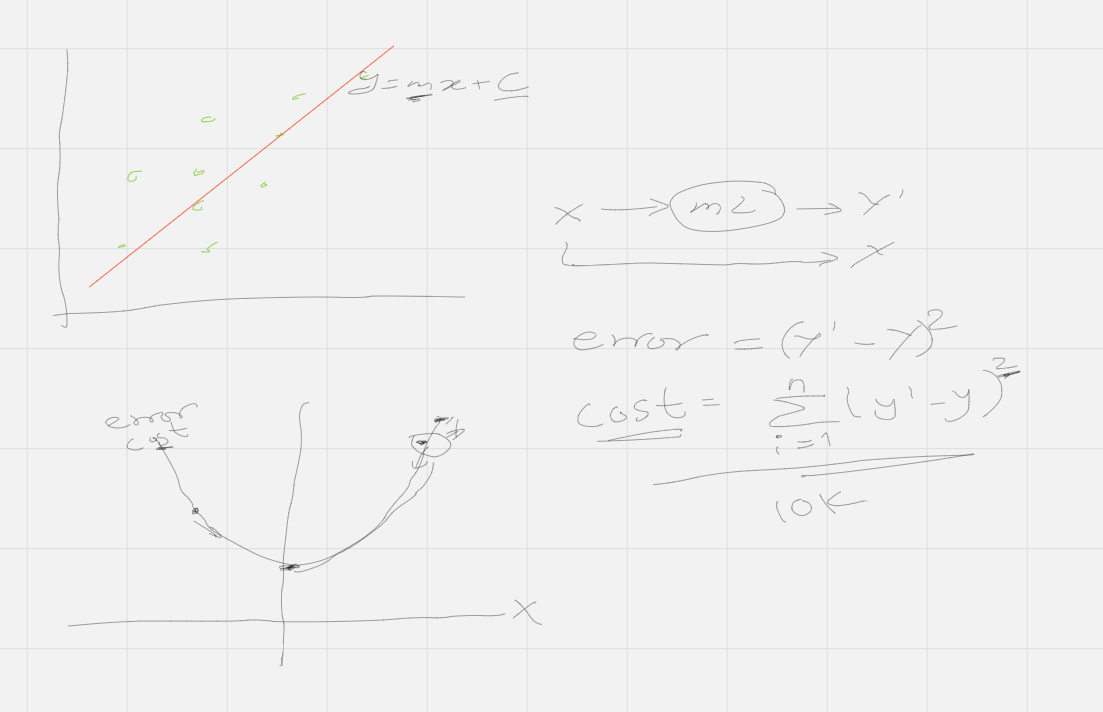 y = mx + C
X → ML → Y'
Y
error = (Y' - Y)²
cost = n ∑ i=1 (y' - y)²
10K
error
cost
X